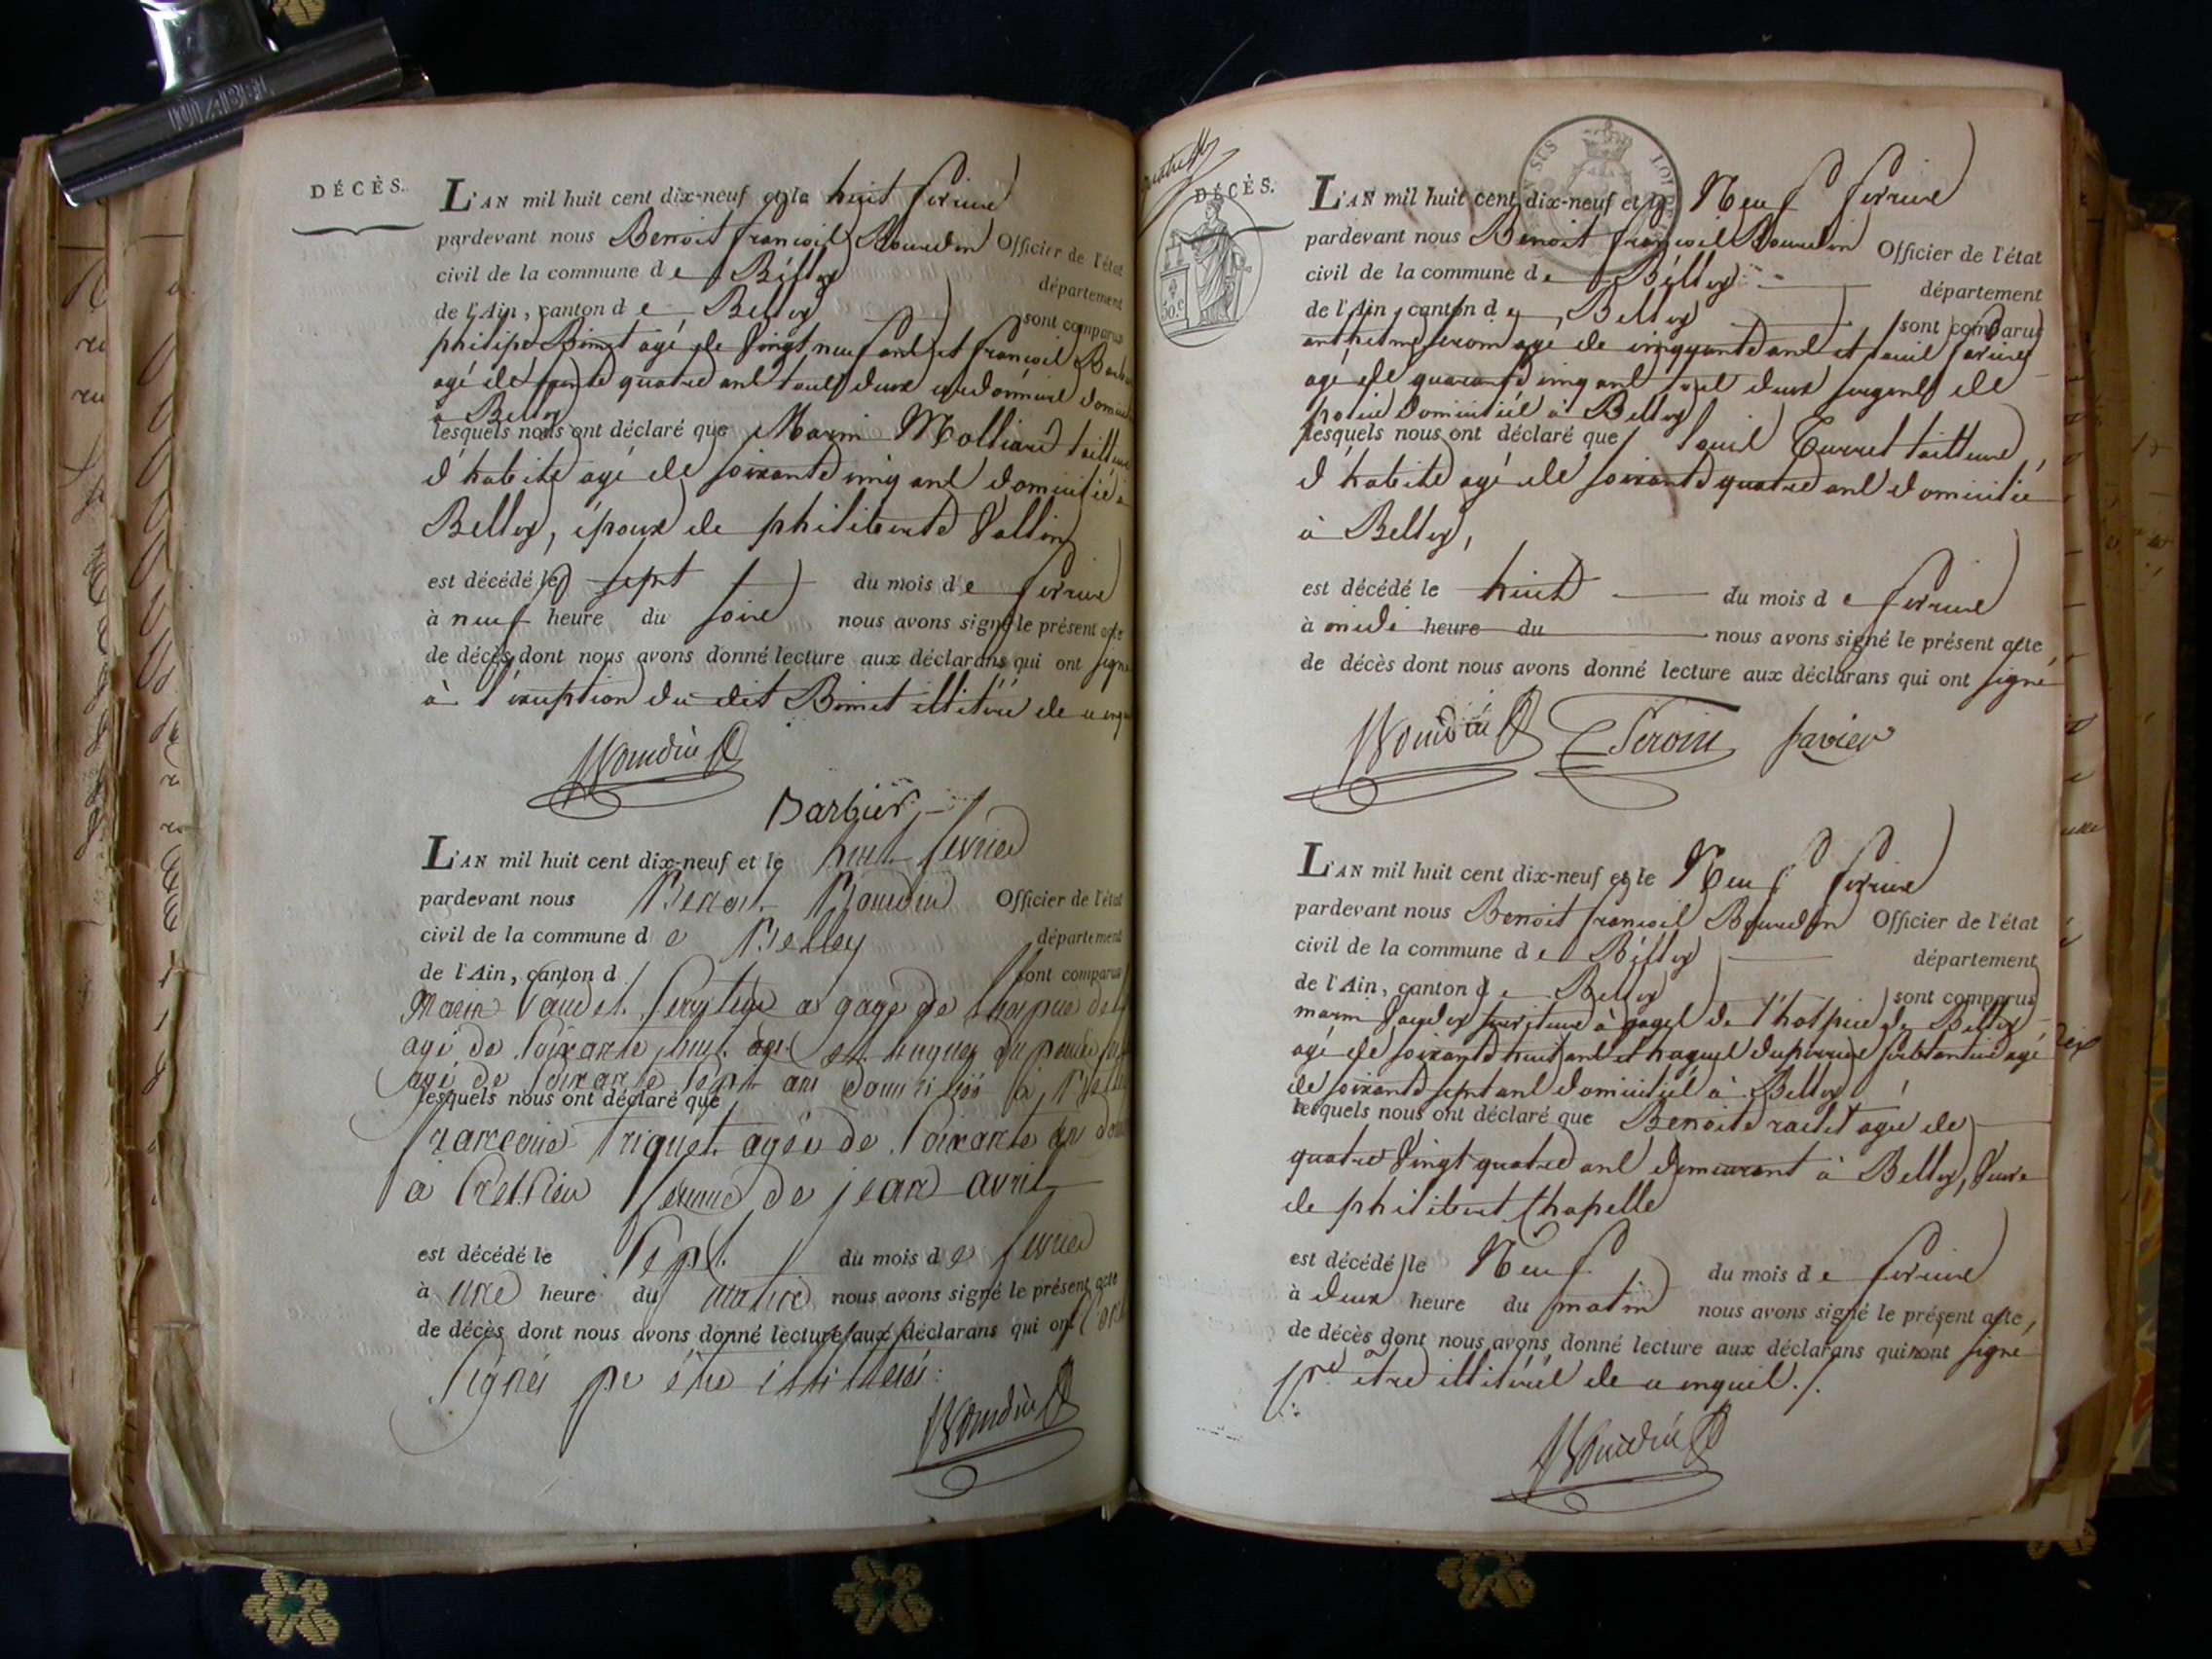 DÉCÈS.
L'AN mil huit cent dix-neuf et le huit fevrier
pardevant nous Benoit françois Bourdin Officier de l'état
civil de la commune de Belley
département
de l'Ain, canton de Belley
sont comparus
philipe Binet agé de vingt neuf ans et françois
agé de trente quatre ans tous deux cordonniers
à Belley
lesquels nous ont déclaré que Marin Molliard tailleur
d'habits agé de soixante cinq ans domicilié à
Belley, époux de philiberte Vallin
est décédé le sept du mois de fevrier
à neuf heure du soir nous avons signé le présent acte
de décès dont nous avons donné lecture aux déclarans qui ont signé
à l'exception du dit Binet illitéré de ce
Bourdin
Barbier
L'AN mil huit cent dix-neuf et le huit fevrier
pardevant nous Benoit Bourdin Officier de l'état
civil de la commune de Belley
département
de l'Ain, canton d
sont comparus
Marin Vaudet Serviteur a gage de
agé de soixante huit ans et hugues
agé de soixante sept ans domiciliés à Belley
lesquels nous ont déclaré que
françoise Triquet agée de soixante an
à femme de jean avril
est décédé le sept du mois de fevrier
à une heure du matin nous avons signé le présent acte
de décès dont nous avons donné lecture aux déclarans qui ont
signés pr être illitérés.
Bourdin
DÉCÈS.
50.c
L'AN mil huit cent dix-neuf et le Neuf fevrier
pardevant nous Benoit françois Bourdin Officier de l'état
civil de la commune de Belley
département
de l'Ain, canton de Belley
sont comparus
anthelme seroin agé de cinquante ans et louis favier
agé de quarante cinq ans tous deux sergents de
police domiciliés à Belley
lesquels nous ont déclaré que louis Curret tailleur
d'habits agé de soixante quatre ans domicilié
à Belley,
est décédé le huit du mois de fevrier
à midi heure du nous avons signé le présent acte
de décès dont nous avons donné lecture aux déclarans qui ont signé
Bourdin Seroin favier
L'AN mil huit cent dix-neuf et le Neuf fevrier
pardevant nous Benoit françois Bourdin Officier de l'état
civil de la commune de Belley
département
de l'Ain, canton de Belley
sont comparus
marin Vaudet serviteur à gages de l'hospice de Belley
agé de soixante huit ans et hugues duperrier agé
de soixante sept ans domiciliés à Belley
lesquels nous ont déclaré que Benoite raclet agée de
quatre vingt quatre ans demeurant à Belley, veuve
de philibert Chapelle
est décédé le Neuf du mois de fevrier
à deux heure du matin nous avons signé le présent acte,
de décès dont nous avons donné lecture aux déclarans qui n'ont signé
pr être illitérés de ce enquis./.
Bourdin